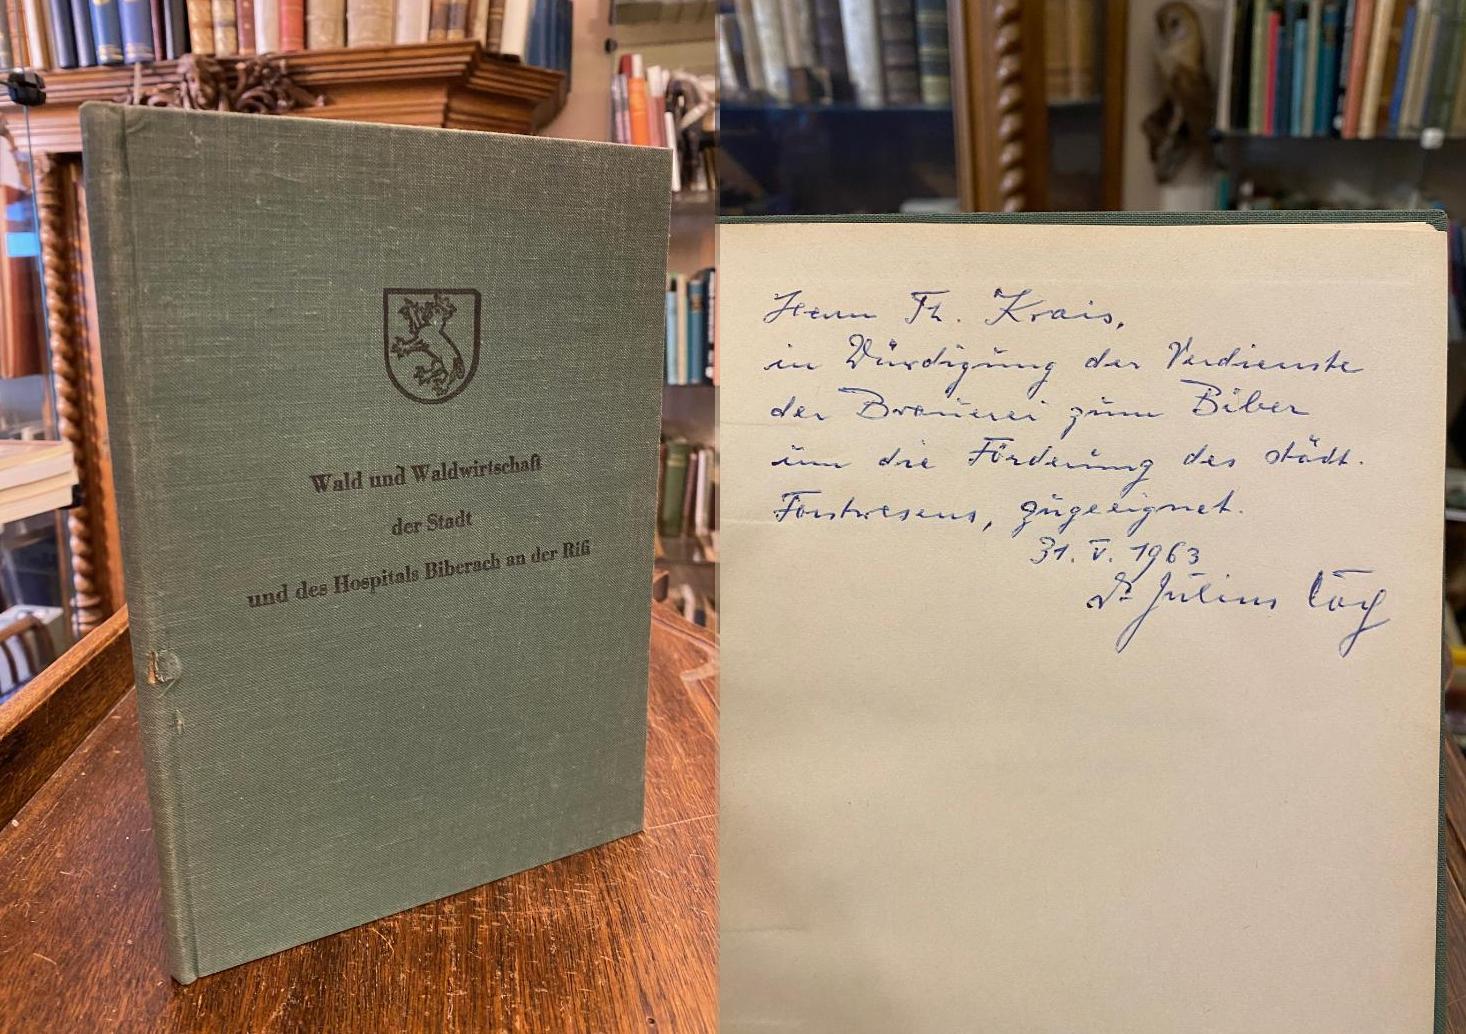 Wald und Waldwirtschaft
der Stadt
und des Hospitals Biberach an der Riß
Herrn Th. Krais,
in Würdigung der Verdienste
der Brauerei zum Biber
um die Förderung des städt.
Forstwesens, zugeeignet.
31. V. 1963
Dr Julius